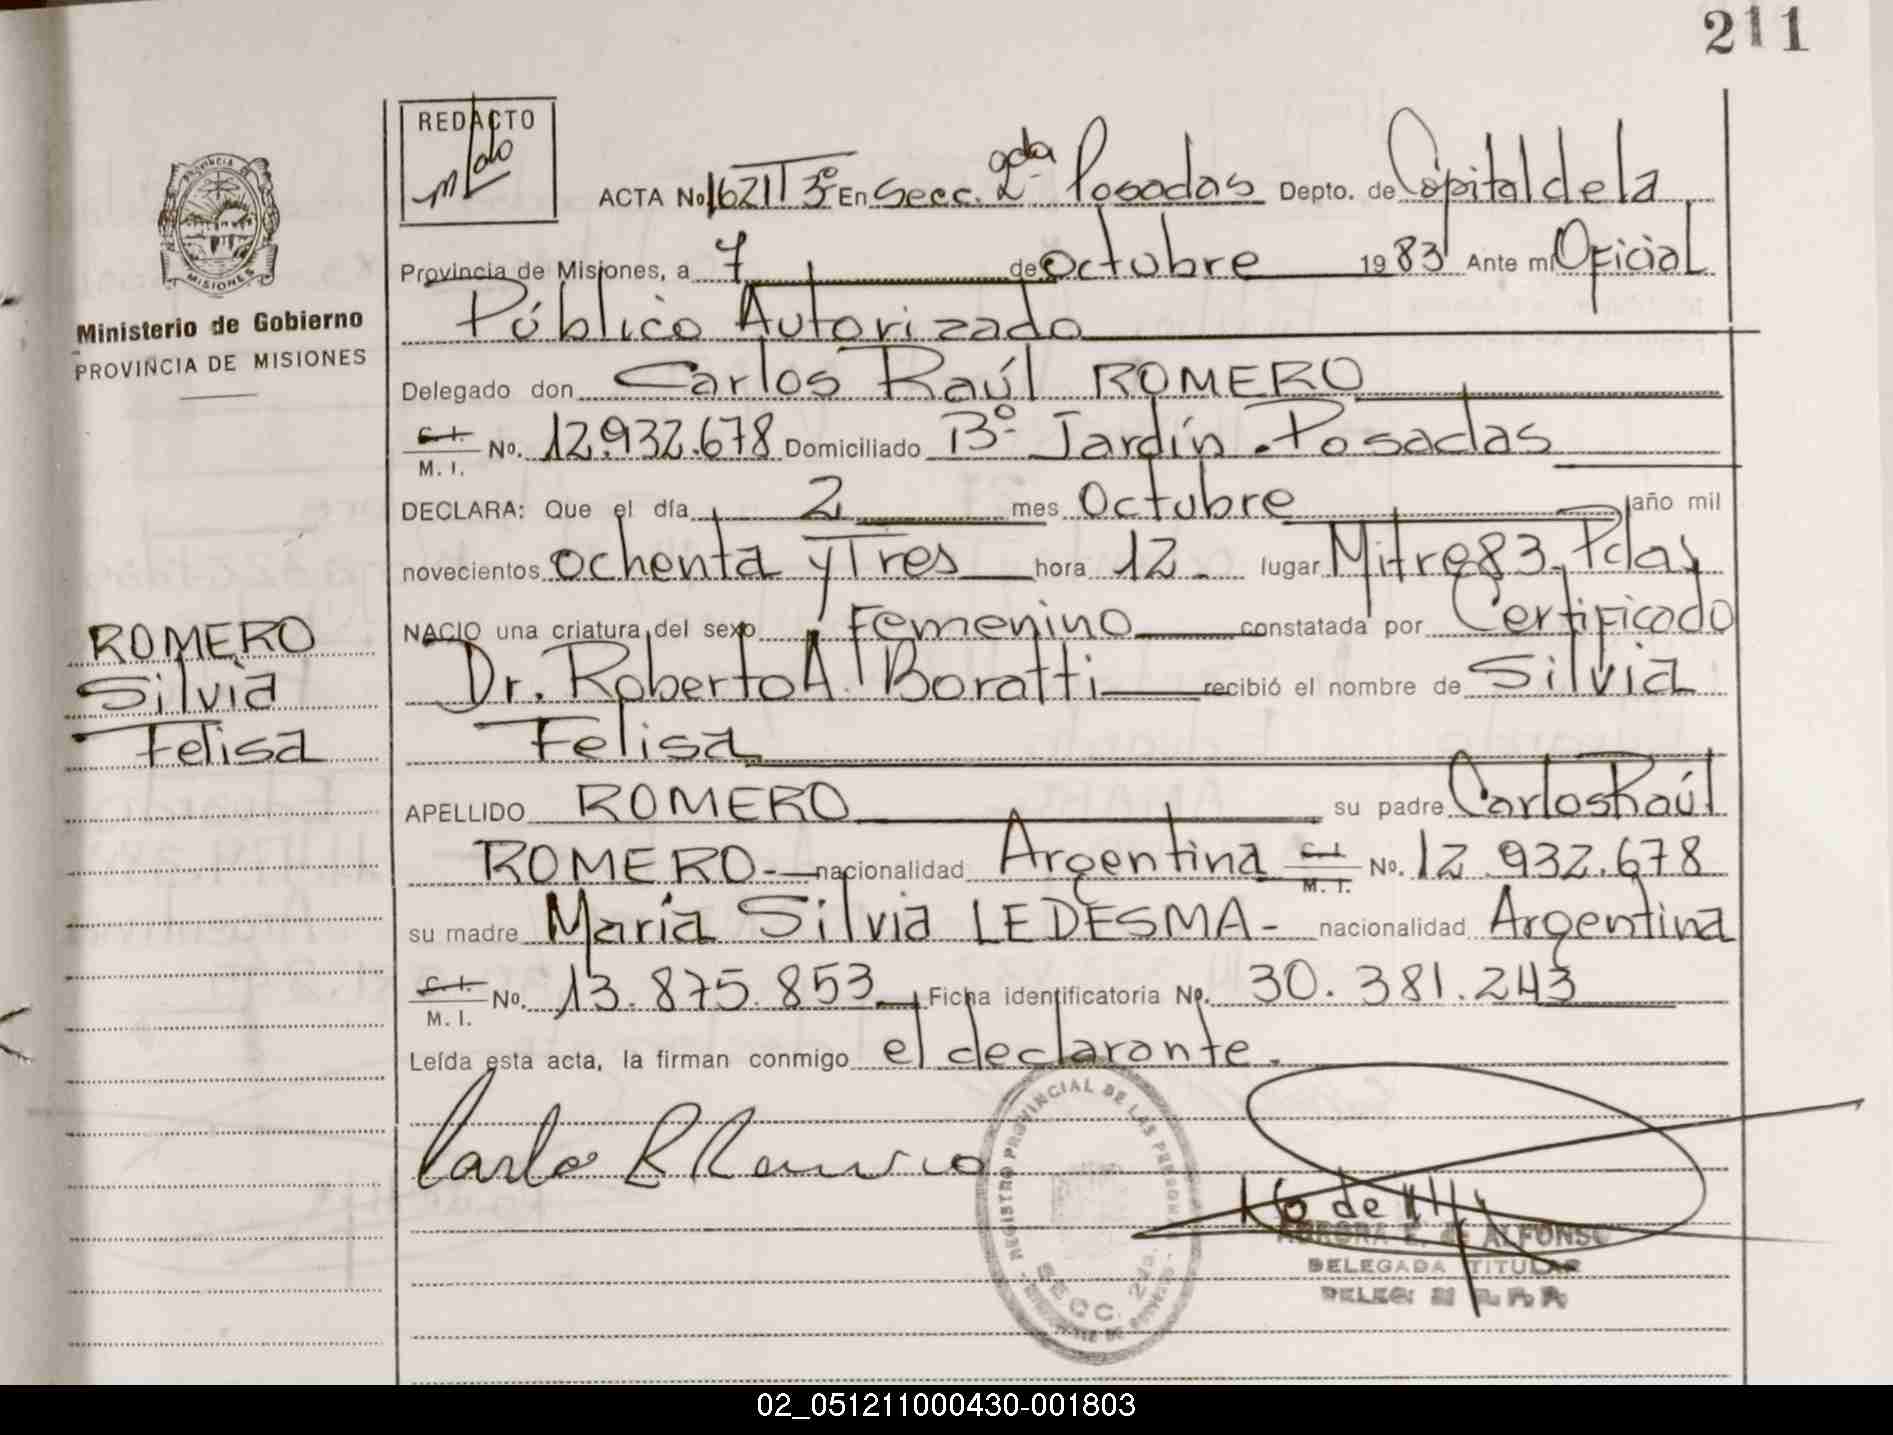 211
REDACTO
ACTA No 1621 T 3º En Secc. 2da Posadas Depto. de Capital de la
Provincia de Misiones, a 7 de Octubre 1983 Ante mí Oficial
Público Autorizado
Ministerio de Gobierno
PROVINCIA DE MISIONES
Delegado don Carlos Raúl ROMERO
C. I. / M. I. No. 12.932.678 Domiciliado Bº Jardín - Posadas
DECLARA: Que el día 2 mes Octubre año mil
novecientos ochenta y Tres hora 12. lugar Mitre 83. Pdas
NACIO una criatura del sexo Femenino constatada por Certificado
Dr. Roberto A. Boratti recibió el nombre de Silvia
Felisa
ROMERO
Silvia
Felisa
APELLIDO ROMERO su padre Carlos Raúl
ROMERO.- nacionalidad Argentina C. I. / M. I. No. 12.932.678
su madre María Silvia LEDESMA- nacionalidad Argentina
C. I. / M. I. No. 13.875.853 Ficha identificatoria No. 30.381.243
Leída esta acta, la firman conmigo el declarante.
Carlos R Romero
REGISTRO PROVINCIAL DE LAS PERSONAS
SECC. 2da.
AURORA E. ALFONSO
DELEGADA TITULAR
02_051211000430-001803